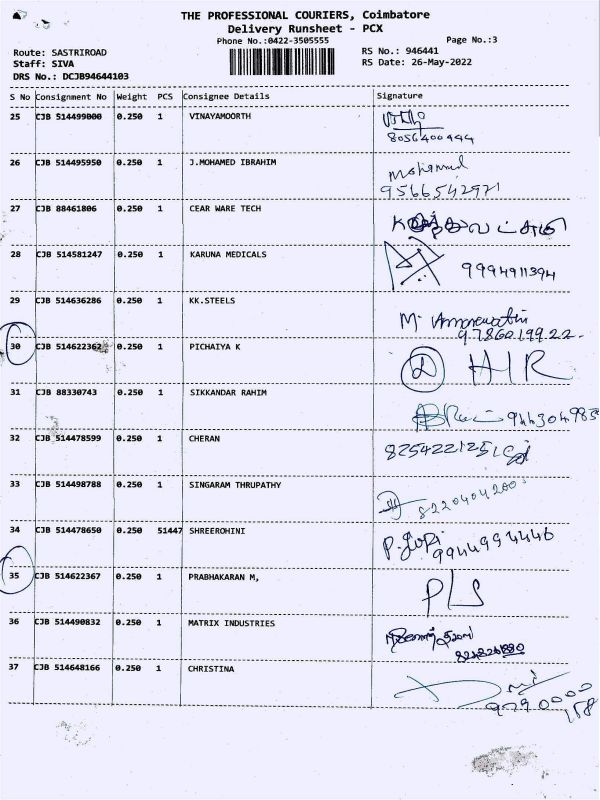 THE PROFESSIONAL COURIERS, Coimbatore
Delivery Runsheet - PCX
Phone No.:0422-3505555 Page No.:3
Route: SASTRIROAD RS No.: 946441
Staff: SIVA RS Date: 26-May-2022
DRS No.: DCJB94644103
S No Consignment No Weight PCS Consignee Details Signature
25 CJB 514499000 0.250 1 VINAYAMOORTH
8056400444
26 CJB 514495950 0.250 1 J.MOHAMED IBRAHIM Mohammed
9566542971
27 CJB 88461806 0.250 1 CEAR WARE TECH
28 CJB 514581247 0.250 1 KARUNA MEDICALS 9994911394
29 CJB 514636286 0.250 1 KK.STEELS M.
9786019922
30 CJB 514622362 0.250 1 PICHAIYA K HIR
31 CJB 88330743 0.250 1 SIKKANDAR RAHIM
32 CJB 514478599 0.250 1 CHERAN 8254221251
33 CJB 514498788 0.250 1 SINGARAM THRUPATHY 8220404200
34 CJB 514478650 0.250 51447 SHREEROHINI P. Gopi
9944994446
35 CJB 514622367 0.250 1 PRABHAKARAN M, PLS
36 CJB 514490832 0.250 1 MATRIX INDUSTRIES
37 CJB 514648166 0.250 1 CHRISTINA
9790000
158